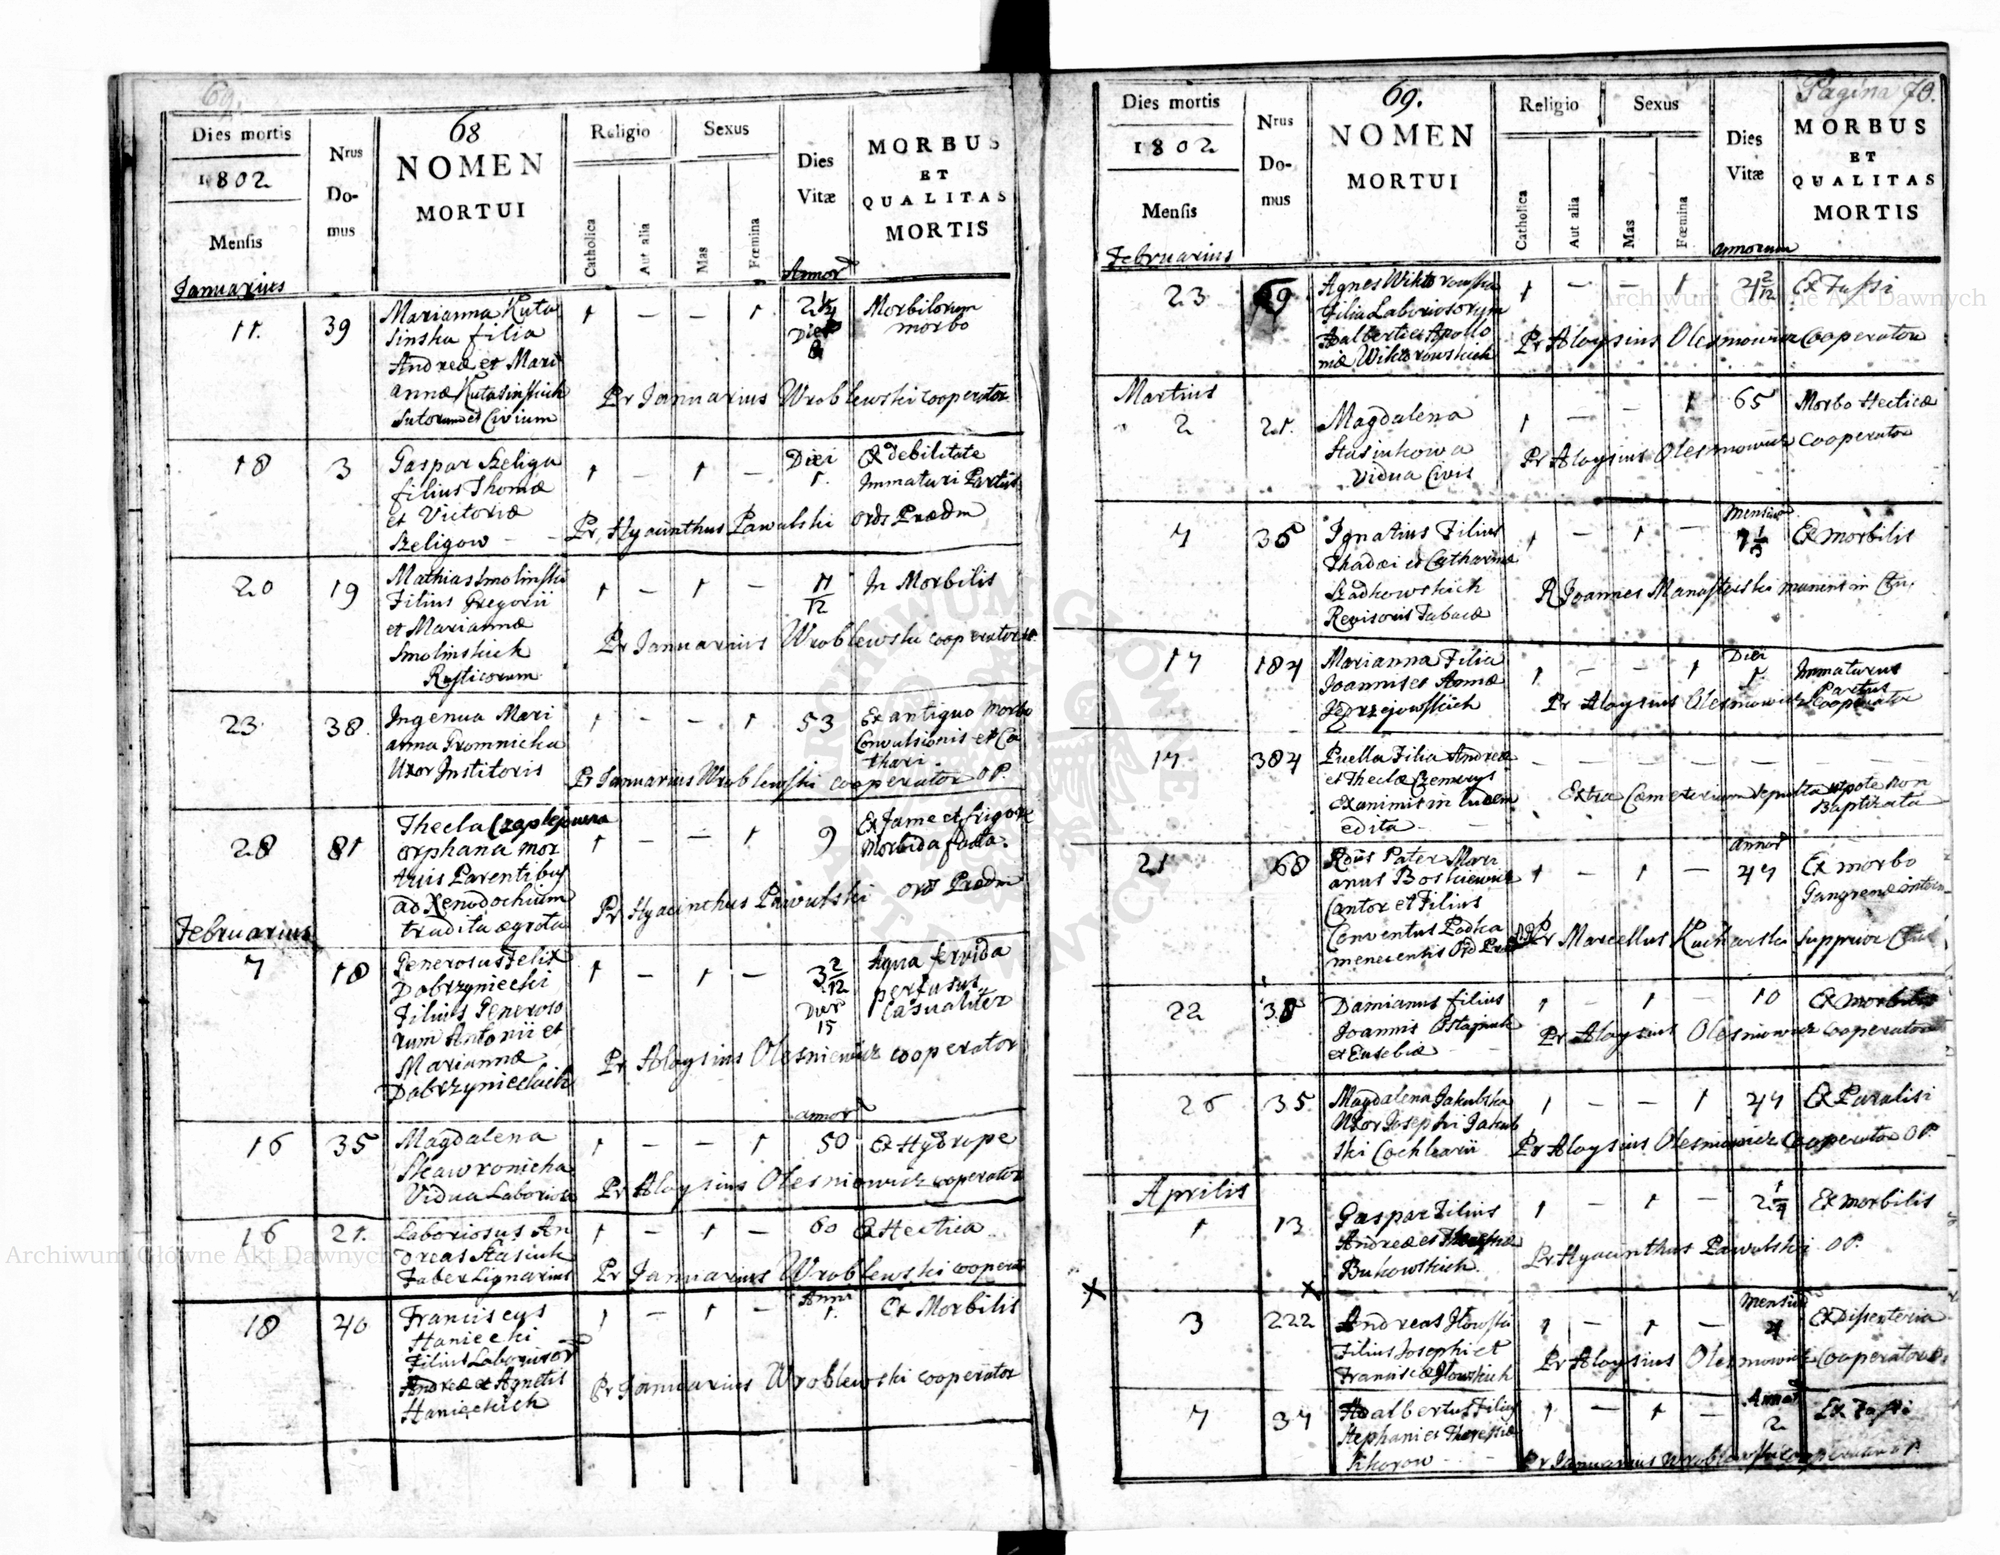 69.
Dies mortis
1802
Mensis
Januarius
Nrus
Do-
mus
68
NOMEN
MORTUI
Religio
Catholica
Aut alia
Sexus
Mas
Fœmina
Dies
Vitæ
Annor
MORBUS
ET
QUALITAS
MORTIS
11. 39
Marianna Kuta
sinska filia
Andreæ et Mari
annæ Kutasinskich
Sutorum et Civium
1 — — 1
2 1/4
Dier
8
Morbilorum
morbo
Pr Januarius Wroblewski cooperator
18 3
Gaspar Szeliga
filius Thomæ
et Victoriæ
Szeligow
1 — 1 —
Diei
1.
Ex debilitate
Immaturi Partus
Pr. Hyacinthus Pawulski Ords Prædm
20 19
Mathias Smolinski
Filius Gregorii
et Mariannæ
Smolinskich
Rusticorum
1 — 1 —
11/12
In Morbilis
Pr Januarius Wroblewski cooperator
23 38
Ingenua Mari
anna Gromnicka
Uxor Institoris
1 — — 1
53
Ex antiquo morbo
Convulsionis et Ca
thari.
Pr Januarius Wroblewski cooperator OP.
28 81
Thecla Czaplejowna
orphana mor
tuis Parentibus
ad Xenodochium
tradita ægrota
1 — — 1
9
Ex fame et frigore
Morbida facta.
Pr Hyacinthus Pawulski Ords Prædm
Februarius
7 18
Generosus Felix
Dobrzyniecki
Filius Generoso
rum Antonii et
Mariannæ
Dobrzynieckich
1 — 1 —
3 2/12
Dier
15
Aqua fervida
perfusus
Casualiter
Pr Aloysius Olesniewicz cooperator
16 35
Magdalena
Skawronicha
Vidua Laboriosa
1 — — 1
annor
50
Ex Hydrope
Pr Aloysius Olesniowicz cooperator
16 21.
Laboriosus An
dreas Stasiuk
Faber Lignarius
1 — 1 —
60
Ex Hectica
Pr Januarius Wroblewski cooperat
18 40
Franciscus
Haniecki
Filius Laborisor
Andreæ et Agnetis
Hanieckich
1 — 1 —
Anni
1.
Ex Morbilis
Pr Januarius Wroblewski cooperator
Pagina 70.
Dies mortis
1802
Mensis
Februarius
Nrus
Do-
mus
69.
NOMEN
MORTUI
Religio
Catholica
Aut alia
Sexus
Mas
Fœmina
Dies
Vitæ
annorum
MORBUS
ET
QUALITAS
MORTIS
23 69
Agnes Wiktorowska
Filia Laboriosorum
Adalberti et Apollo
niæ Wiktorowskich
1 — — 1
4 2/12
Ex Tussi
Pr Aloysius Olesniowicz Cooperator
Martius
2 21.
Magdalena
Stasiukowa
Vidua Civis
1 — — 1
65
Morbo Hecticæ
Pr Aloysius Olesniowicz cooperator
7 35
Ignatius Filius
Thadæi et Catharinæ
Szadkowskich
Revisoris Tabacæ
1 — 1 —
Mensium
Ex morbilis
17 184
Marianna Filia
Joannis et Annæ
Jędrzejowskich
1 — — 1
Diei
1.
Immaturus
Partus
Pr Aloysius Olesniowicz Cooperator
17 384
Puella Filia Andreæ
et Theclæ Czemerys
Exanimis in lucem
edita
Extra Cæmeterium sepulta utpote non
Baptizata
21 68
Rdus Pater Mari
anus Boskiewicz
Cantor et Filius
Conventus Podka
menecensis Ord Præd
1 — 1 —
annor
47
Ex morbo
Gangrenæ intern
Pr Marcellus Kucharski Supprior
22 38
Damianus filius
Joannis Ostapiuk
et Eusebiæ
1 — 1 —
10
Ex morbilis
Pr Aloysius Olesniowicz cooperator
26 35
Magdalena Jakubska
Uxor Josephi Jakub
ski Cochlearii
1 — — 1
47
Ex Paralisi
Pr Aloysius Olesniowicz Cooperator OP.
Aprilis
1 13
Gaspar Filius
Andreæ et Theresiæ
Bukowskich.
1 — 1 —
2 1/4
Ex morbilis
Pr Hyacinthus Pawulski OP.
X X
3 222
Andreas Iłowski
Filius Josephi et
Franciscæ Iłowskich
1 — 1 —
Mensium
4
Ex Dissenteria
Pr Aloysius Olesniowicz Cooperator
7 37
Adalbertus Filius
Stephani et Theresiæ
Sikorow
1 — 1 —
Annor
2
Ex Tussi
Pr Januarius Wroblewski cooperator OP.
Archiwum Główne Akt Dawnych
Archiwum Główne Akt Dawnych
ARCHIWUM GŁÓWNE AKT DAWNYCH